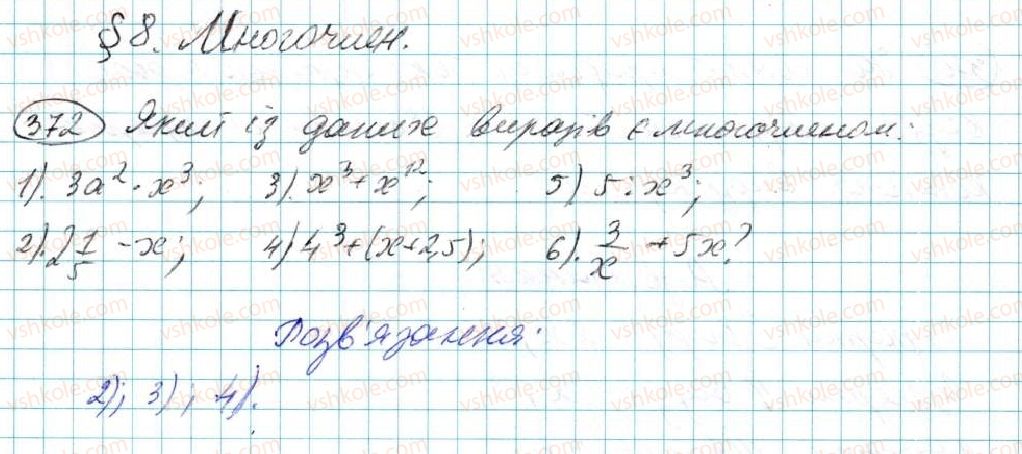 §8. Многочлен.
372 Який із даних виразів є многочленом:
1). 3a² · x³; 3). x³ + x¹²; 5) 5 : x³;
2). 2 1/5 - x; 4) 4³ + (x + 2,5); 6). 3/x + 5x?
Розв'язання:
2); 3); 4).